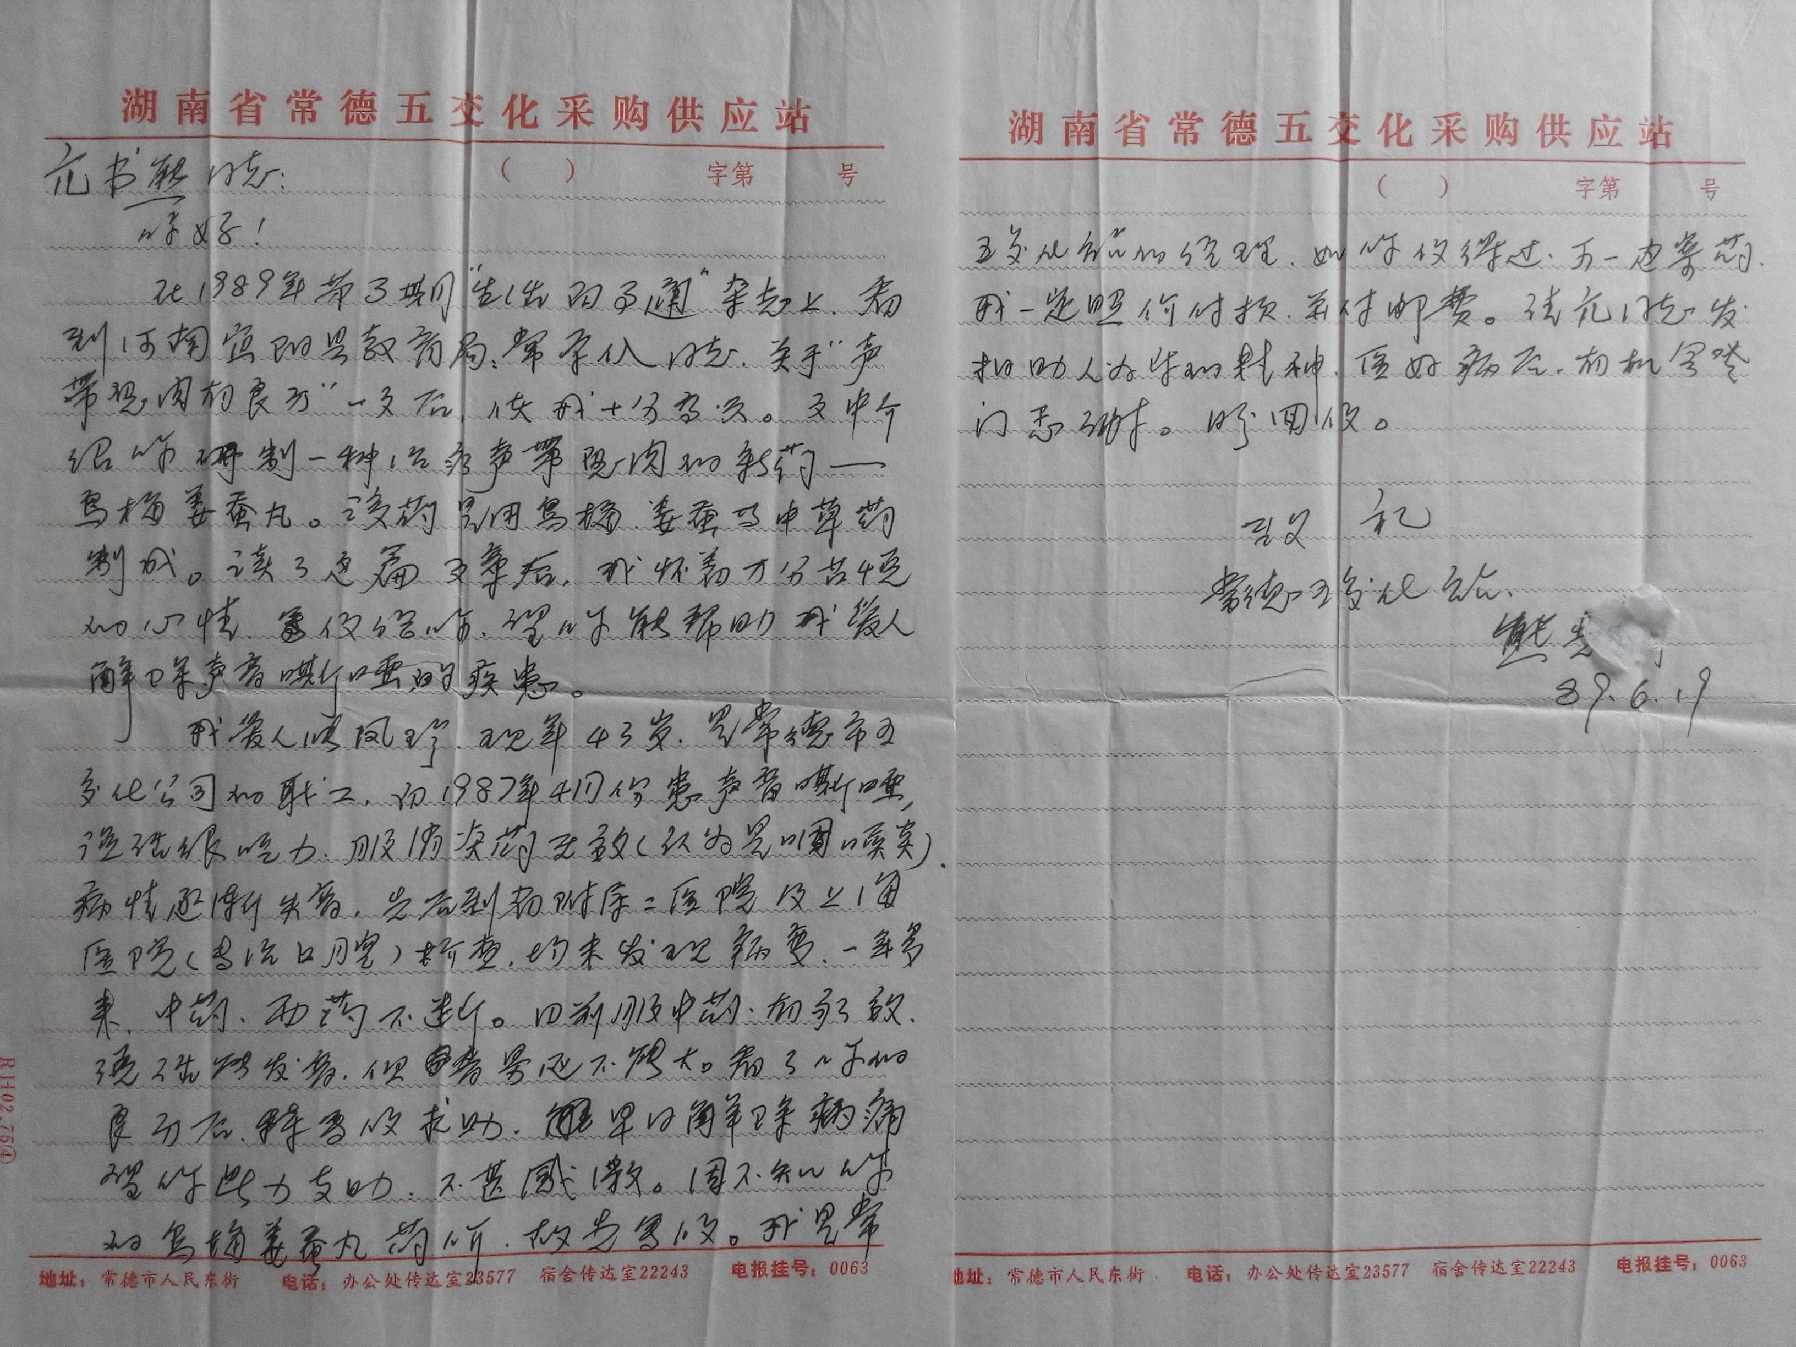 湖南省常德五交化采购供应站
( ) 字第 号
亢书熊同志:
你好!
在1989年第3期“生活百事通”杂志上,看
到河南宜阳县教育局,常 同志,关于“声
带息肉有良方”一文后,使我十分高兴。文中介
绍你研制一种治疗声带息肉的新药——
乌梅姜蚕丸。该药是用乌梅、姜蚕等中草药
制成。读了这篇文章后,我怀着万分
的心情,写信给你,望你能帮助我爱人
解除声音嘶哑的疾患。
我爱人 凤珍,现年43岁,是常德市五
交化公司的职工,河1987年4月份患声音嘶哑,
说话很吃力,服消炎药无效(认为是咽喉炎),
病情逐渐失音,先后到 附属二医院及上海
医院(专治口腔)检查,均未发现病变,一年多
来,中药、西药不断。目前服中药,有疗效,
说话能发音,但声音还不够大。看了你的
良方后,特写信求助,能早日解除病痛
望你 力支助,不甚感激。因不知你
的乌梅姜蚕丸药价,故先写信。我是常
地址:常德市人民东街 电话:办公处传达室23577 宿舍传达室22243 电报挂号:0063
RH02.754④
湖南省常德五交化采购供应站
( ) 字第 号
五交化站的经理,如你信得过,可一边寄药,
我一定照价付款,并付邮费。请亢同志发
扬助人为乐的精神,医好病后,有机会登
门恳谢。盼回信。
致 礼
常德五交化站
熊
89.6.19
地址:常德市人民东街 电话:办公处传达室23577 宿舍传达室22243 电报挂号:0063